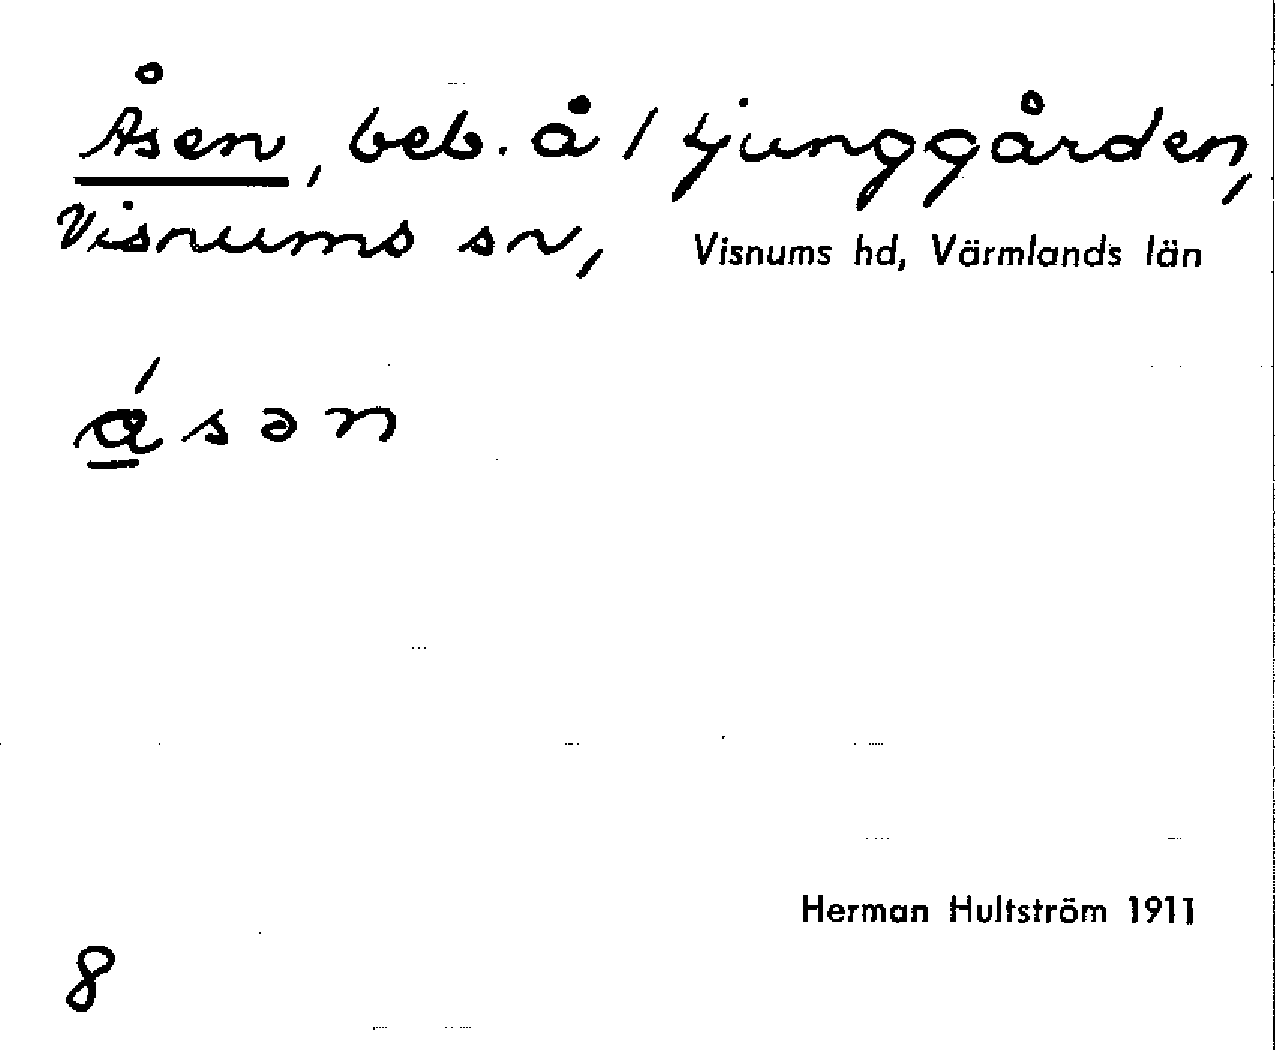 Åsen, beb. å 1/4 Ljunggården,
Visnums sn, Visnums hd, Värmlands län
á̲sən
Herman Hultström 1911
8